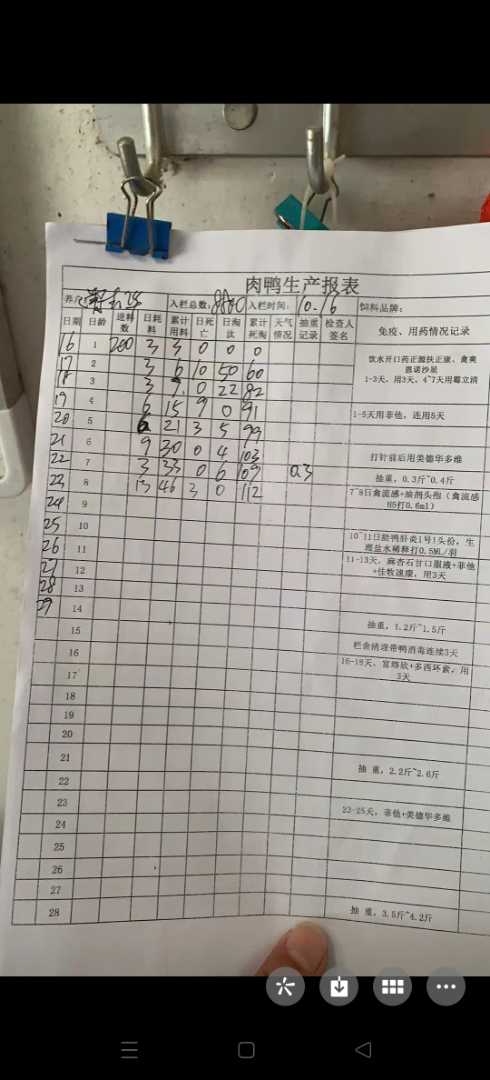 肉鸭生产报表
入栏总数: 8880 入栏时间: 10.16 饲料品牌:
日期 日龄 进料数 日耗料 累计用料 日死亡 日淘汰 累计死淘 天气情况 抽重记录 检查人签名 免疫、用药情况记录
16 1 200 3 3 0 0 0
17 2 3 6 10 50 60
18 3 3 9 0 22 82
19 4 6 15 9 0 91
20 5 6 21 3 5 99
21 6 9 30 0 4 103
22 7 3 33 0 6 109 0.3
23 8 13 46 3 0 112
24 9
25 10
26 11
27 12
28 13
29 14
15
16
17
18
19
20
21
22
23
24
25
26
27
28
1-3天，用3天，4~7天用霉立消
1-5天用菲他，连用5天
打针前后用美德华多维
抽重，0.3斤~0.4斤
7~8日禽流感+油剂头孢（禽流感
H5打0.6ml）
10~11日龄鸭肝炎1号1头份，生
理盐水稀释打0.5ML/羽
11-13天，麻杏石甘口服液+菲他
抽重，1.2斤~1.5斤
栏舍清理带鸭消毒连续3天
抽 重，2.2斤~2.6斤
23-25天，菲他+美德华多维
抽 重，3.5斤~4.2斤